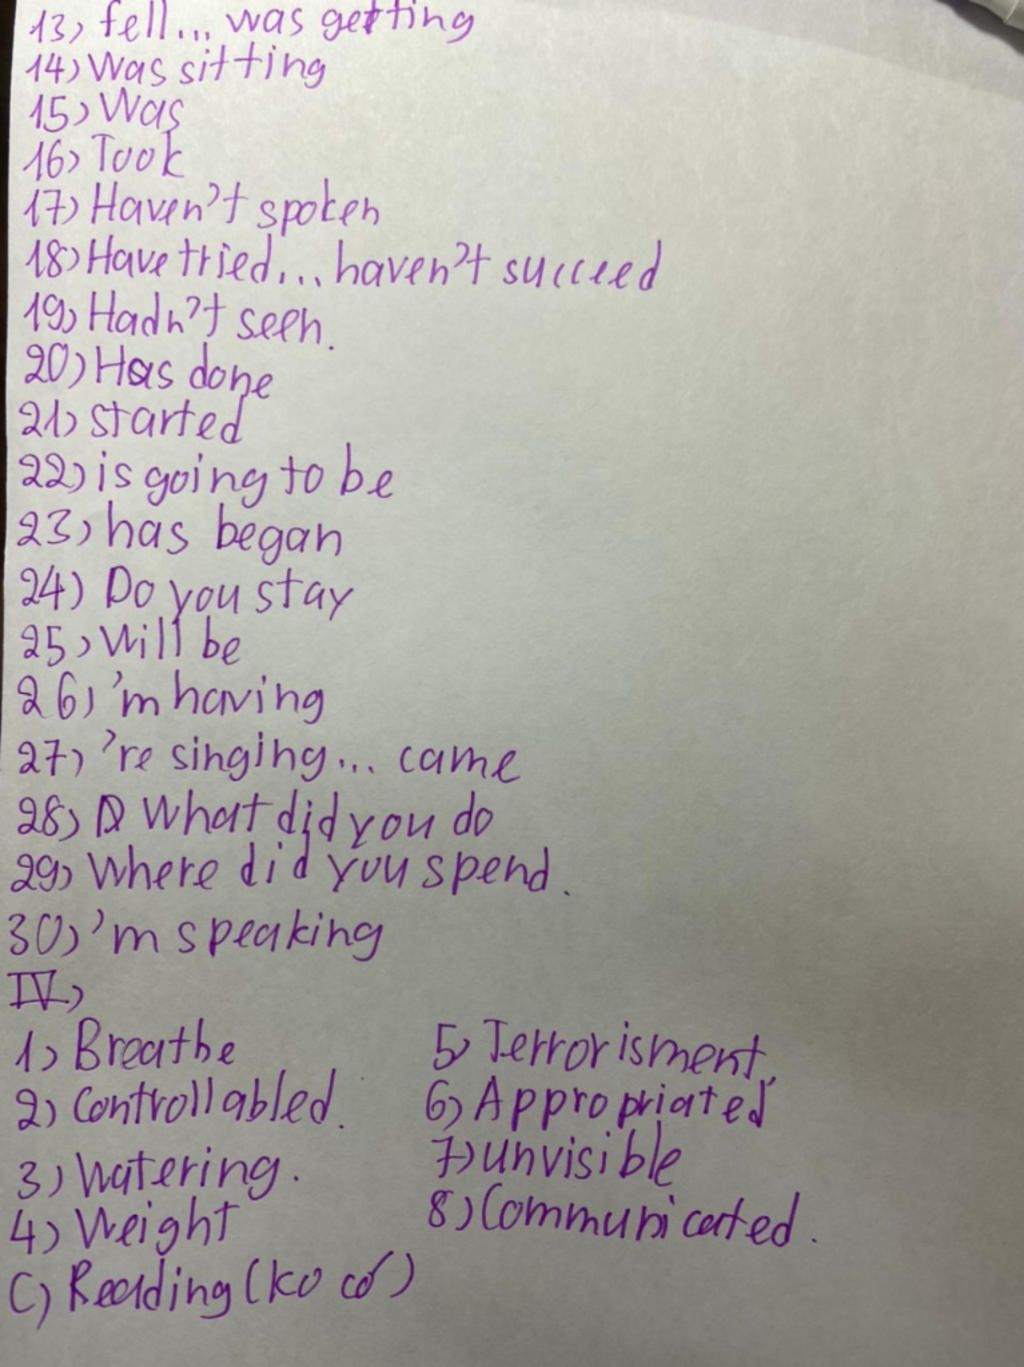 13) fell... was getting
14) Was sitting
15) Was
16) Took
17) Haven't spoken
18) Have tried... haven't succeed
19) Hadn't seen.
20) Has done
21) started
22) is going to be
23) has began
24) Do you stay
25) Will be
26) 'm having
27) 're singing... came
28) What did you do
29) Where did you spend.
30) 'm speaking
IV)
1) Breathe
2) Controllabled.
3) Watering.
4) Weight
5) Terrorisment,
6) Appropriated
7) unvisible
8) Communicated.
C) Reading (ko có)